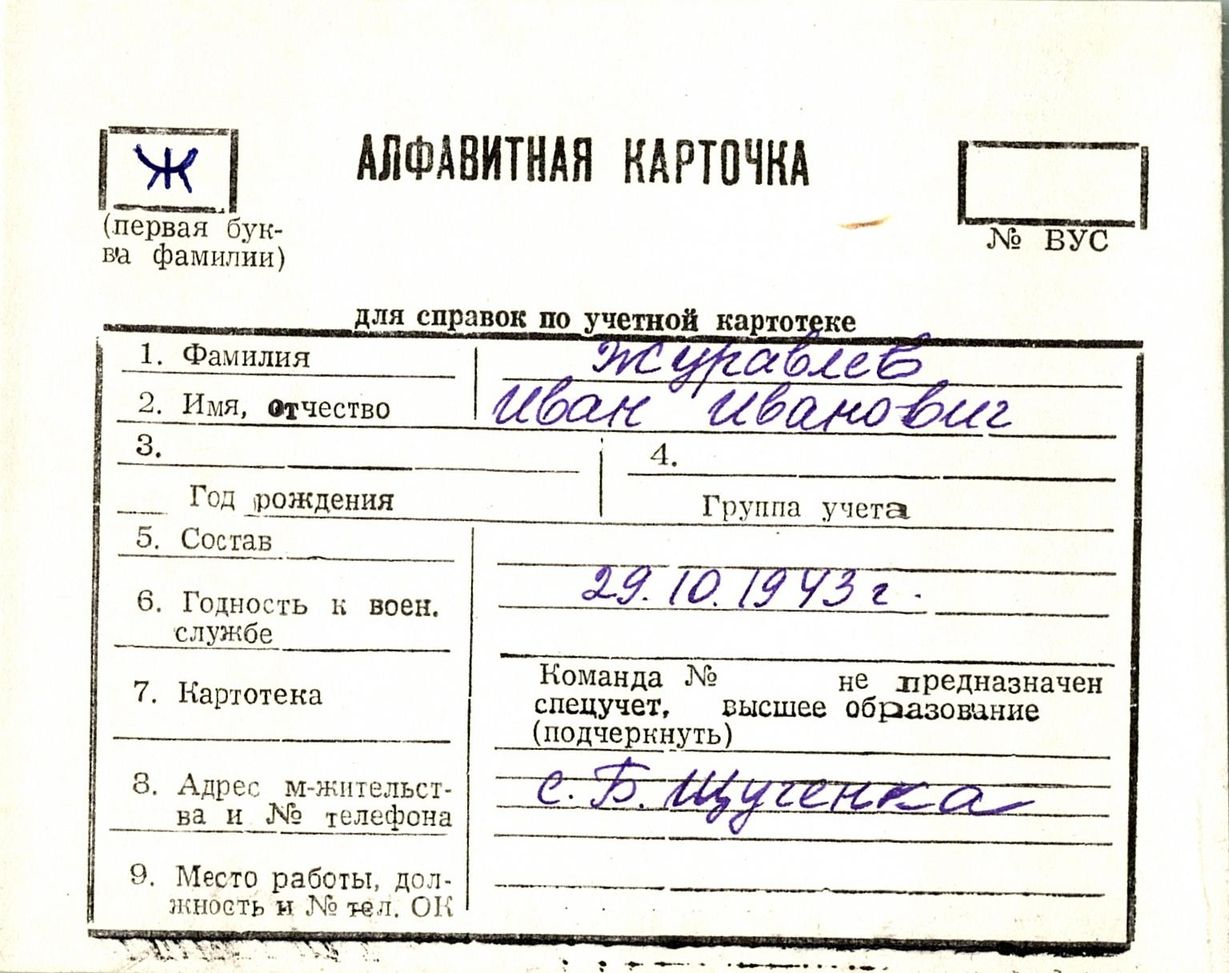 Ж
АЛФАВИТНАЯ КАРТОЧКА
(первая бук-
ва фамилии)
№ ВУС
для справок по учетной картотеке
1. Фамилия Журавлев
2. Имя, отчество Иван Иванович
3. 4.
Год рождения Группа учета
5. Состав
29.10.1943 г.
6. Годность к воен.
службе
7. Картотека
Команда № не предназначен
спецучет, высшее образование
(подчеркнуть)
8. Адрес м-жительст-
ва и № телефона
с. Б. Щученка
9. Место работы, дол-
жность и № тел. ОК